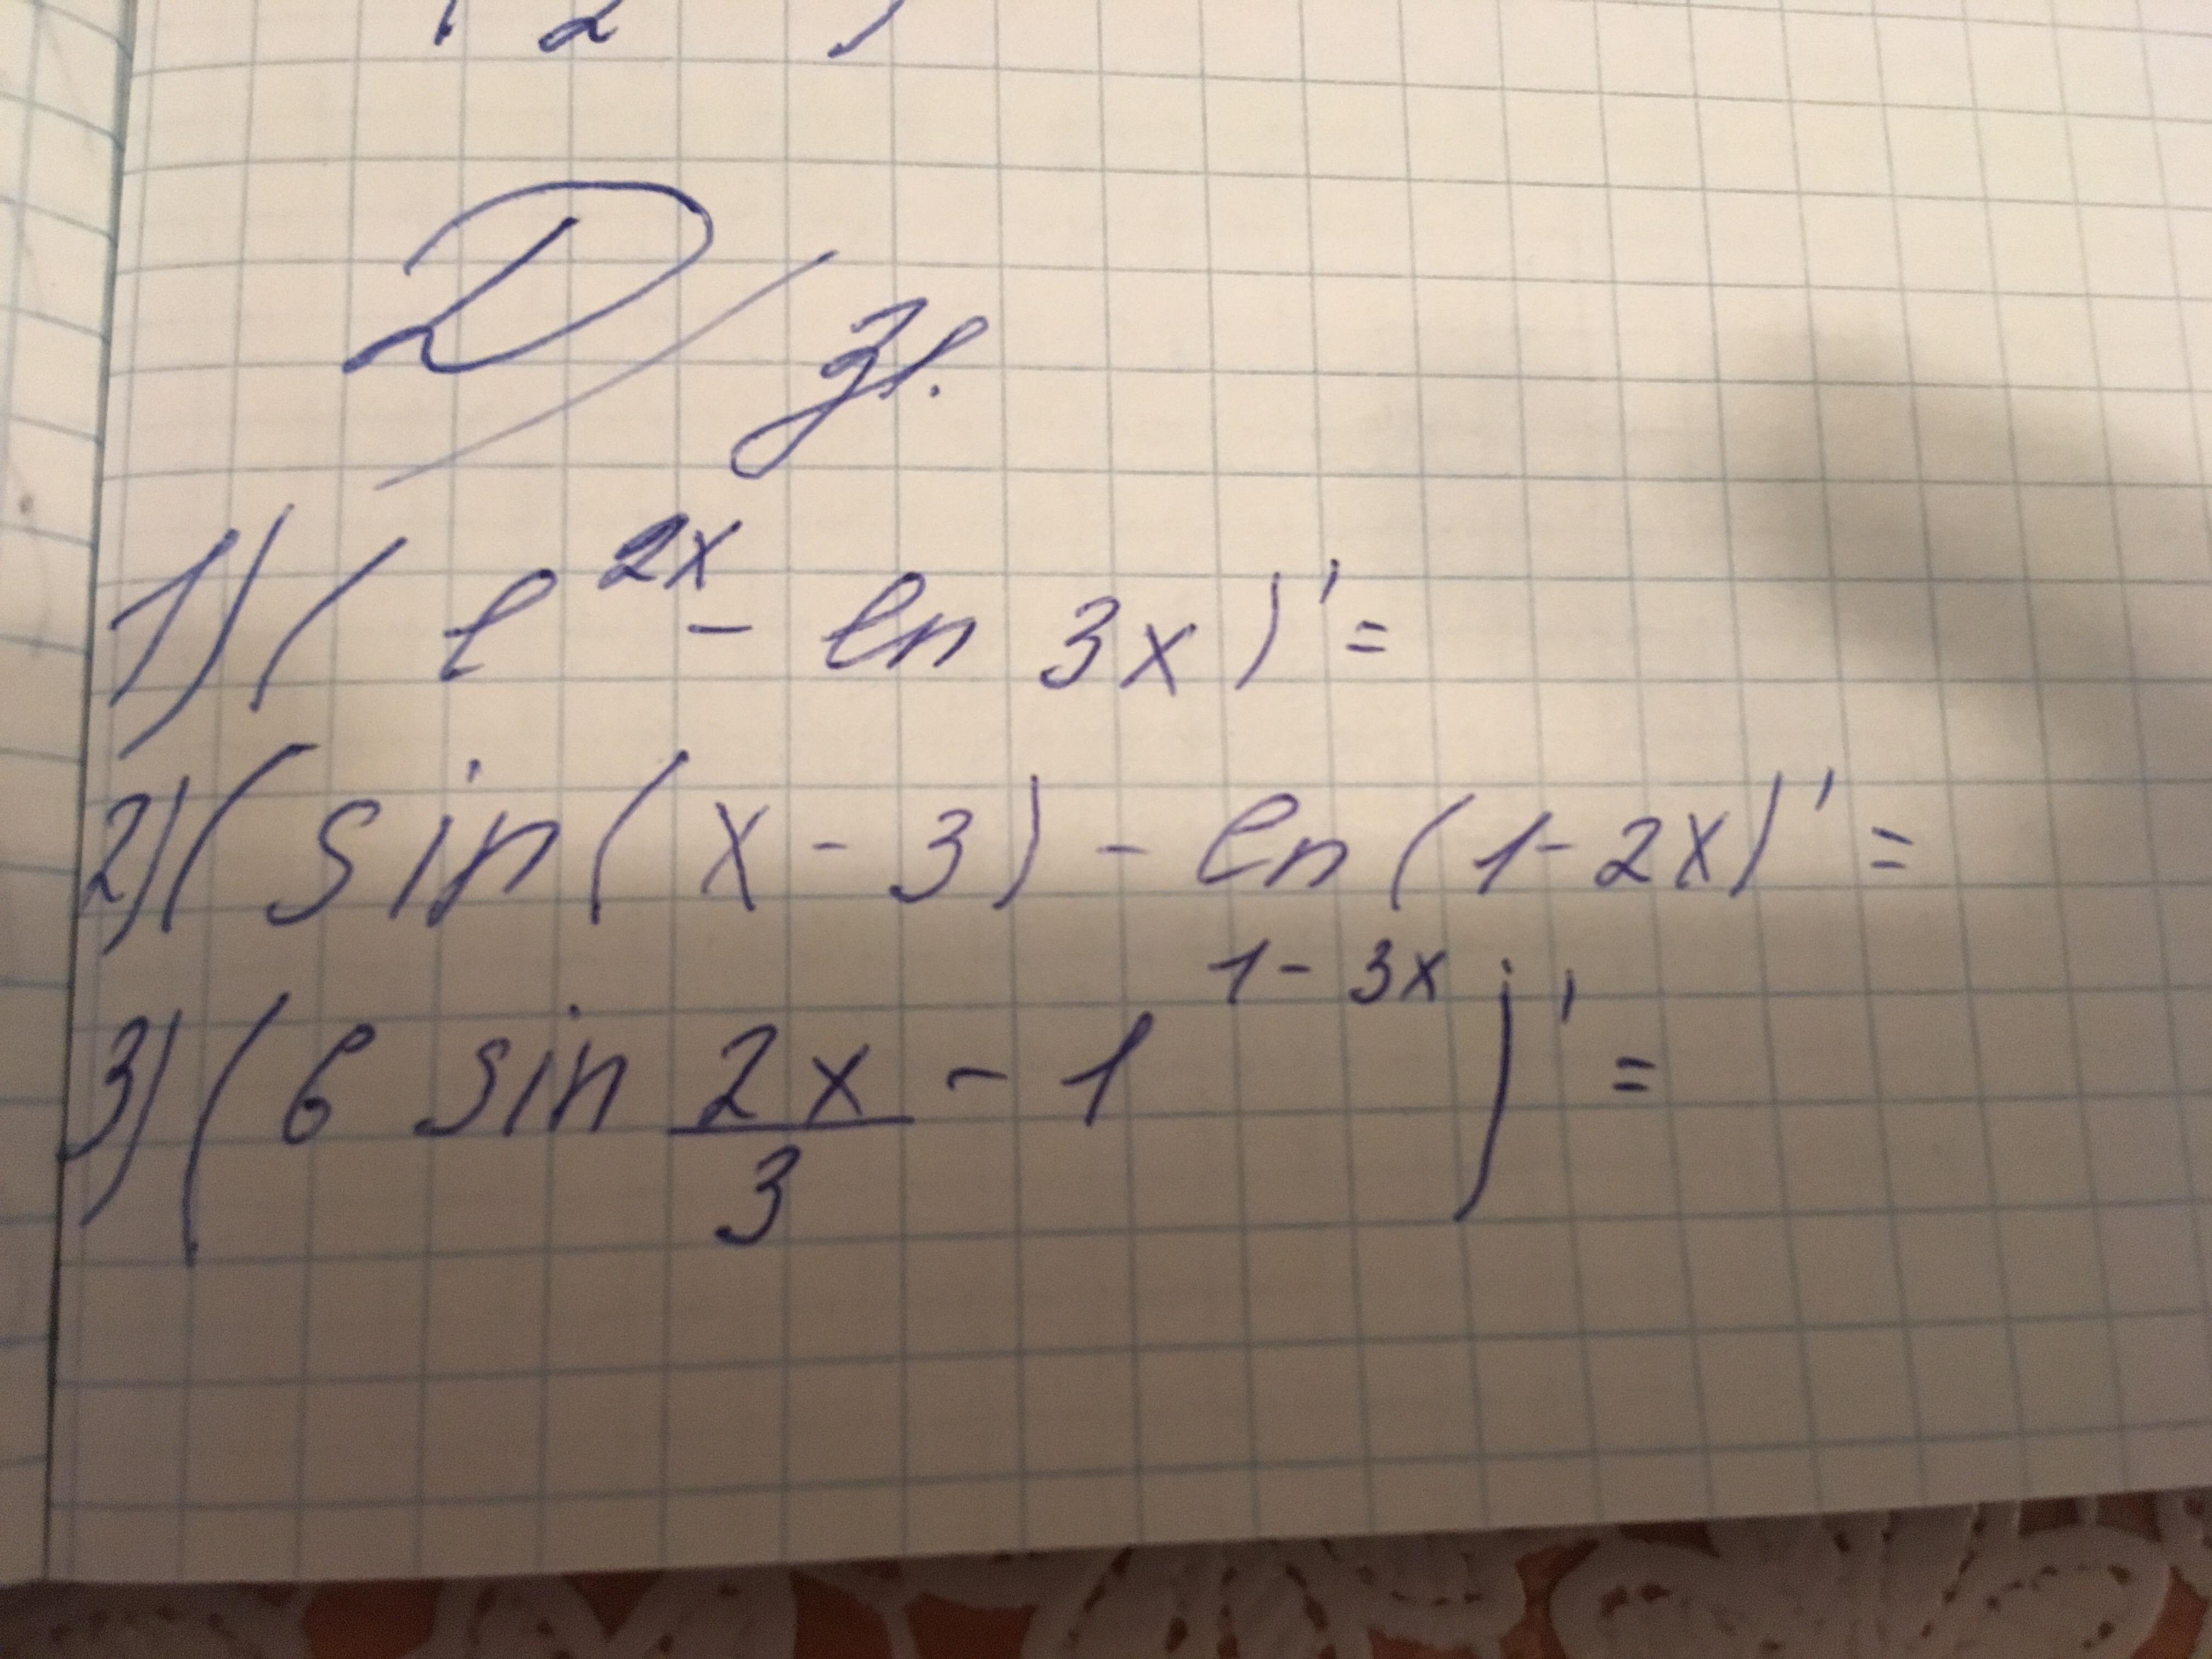 2 )
Д/з.
1) (e^2x - ln 3x)' =
2) (sin(x - 3) - ln(1 - 2x)' =
3) (6 sin 2x/3 - 1^1 - 3x)' =